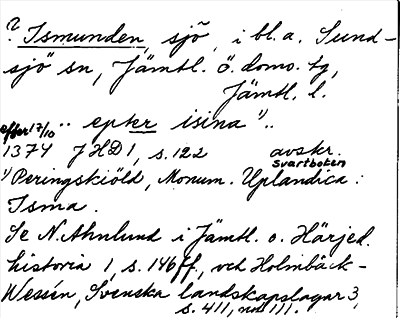 ? Ismunden, sjö, i bl.a. Sund-
sjö sn, Jämtl. ö. doms. tg,
Jämtl. l.
efter 17/10 .. epter isina ¹⁾ ..
1374 JHD 1, s. 122 avskr. Svartboken
¹⁾ Peringskiöld, Monum. Uplandica:
Isma.
Se N. Ahnlund i Jämtl. o. Härjed.
historia 1, s. 146 ff, och Holmbäck-
Wessén, Svenska landskapslagar 3,
s. 411, not 111.